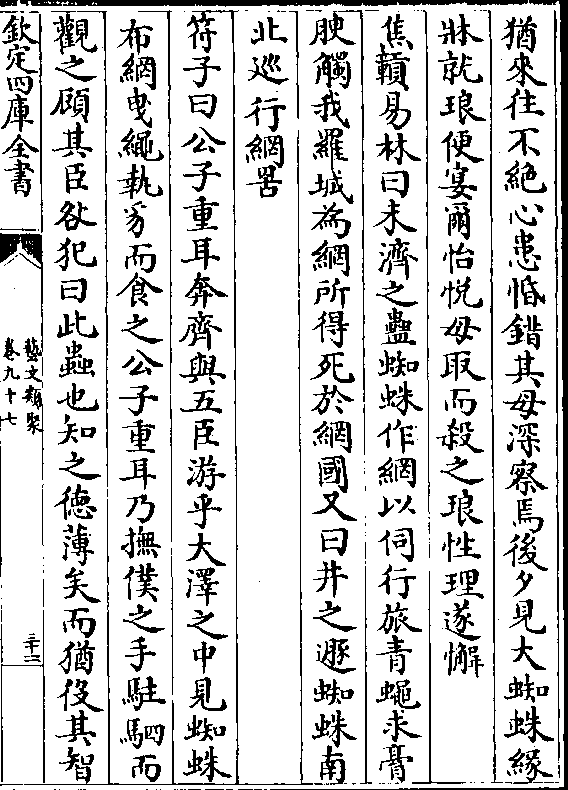 猶來往不絕心患惛錯其母深察焉後夕見大蜘蛛緣
牀就琅便宴爾怡悅母取而殺之琅性理遂懈
焦贛易林曰未濟之蠱蜘蛛作網以伺行旅青蠅求膏
腴觸我羅域為網所得死於網國又曰井之遯蜘蛛南
北巡行網罟
符子曰公子重耳奔齊與五臣游乎大澤之中見蜘蛛
布網曳繩執豸而食之公子重耳乃撫僕之手駐駟而
觀之顧其臣咎犯曰此蟲也知之德薄矣而猶役其智
欽定四庫全書
藝文類聚
卷九十七
三十二